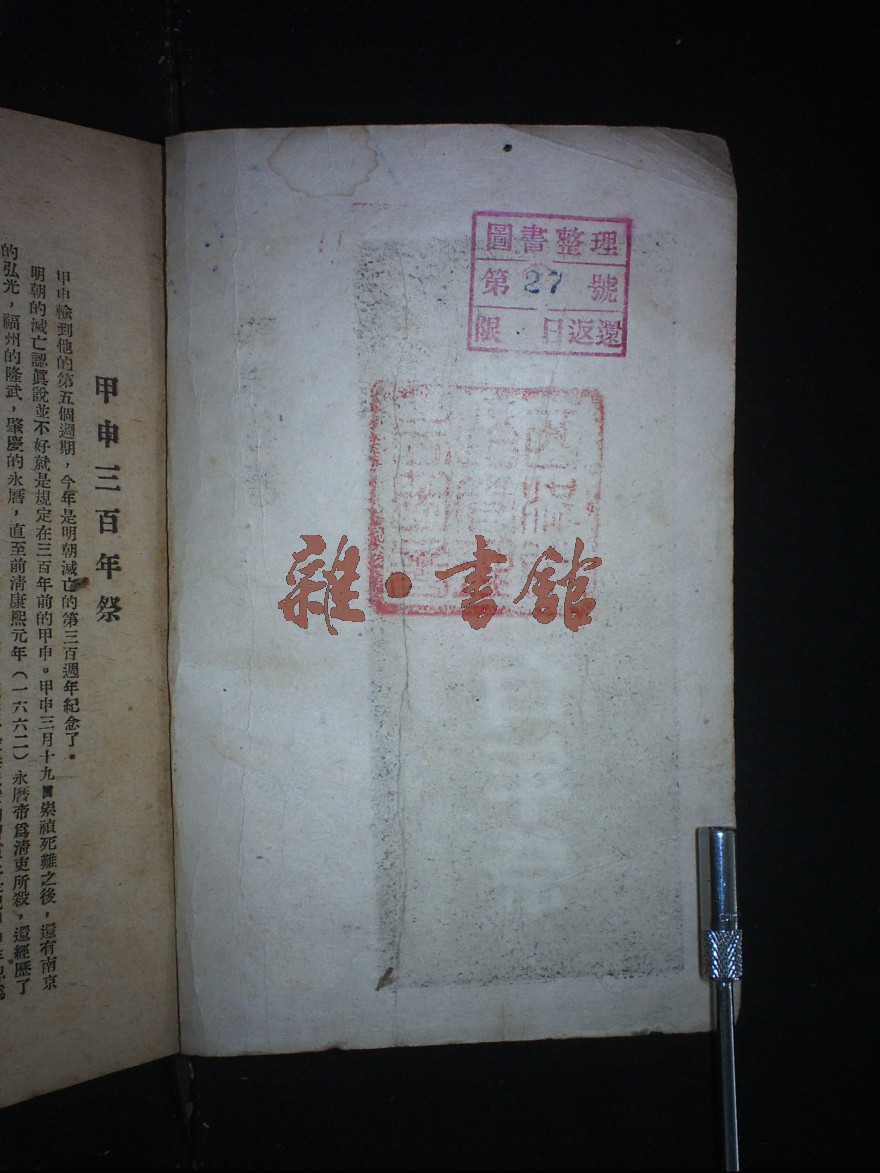 圖書整理
第27號
限 日返還
雜·書館
甲申三百年祭
甲申輪到他的第五個週期，今年是明朝滅亡的第三百週年紀念了。
明朝的滅亡認眞說並不好就是規定在三百年前的甲申。甲申三月十九日崇禎死難之後，還有南京
的弘光，福州的隆武，肇慶的永曆，直至前清康熙元年（一六六二）永曆帝爲清吏所殺，還經歷了